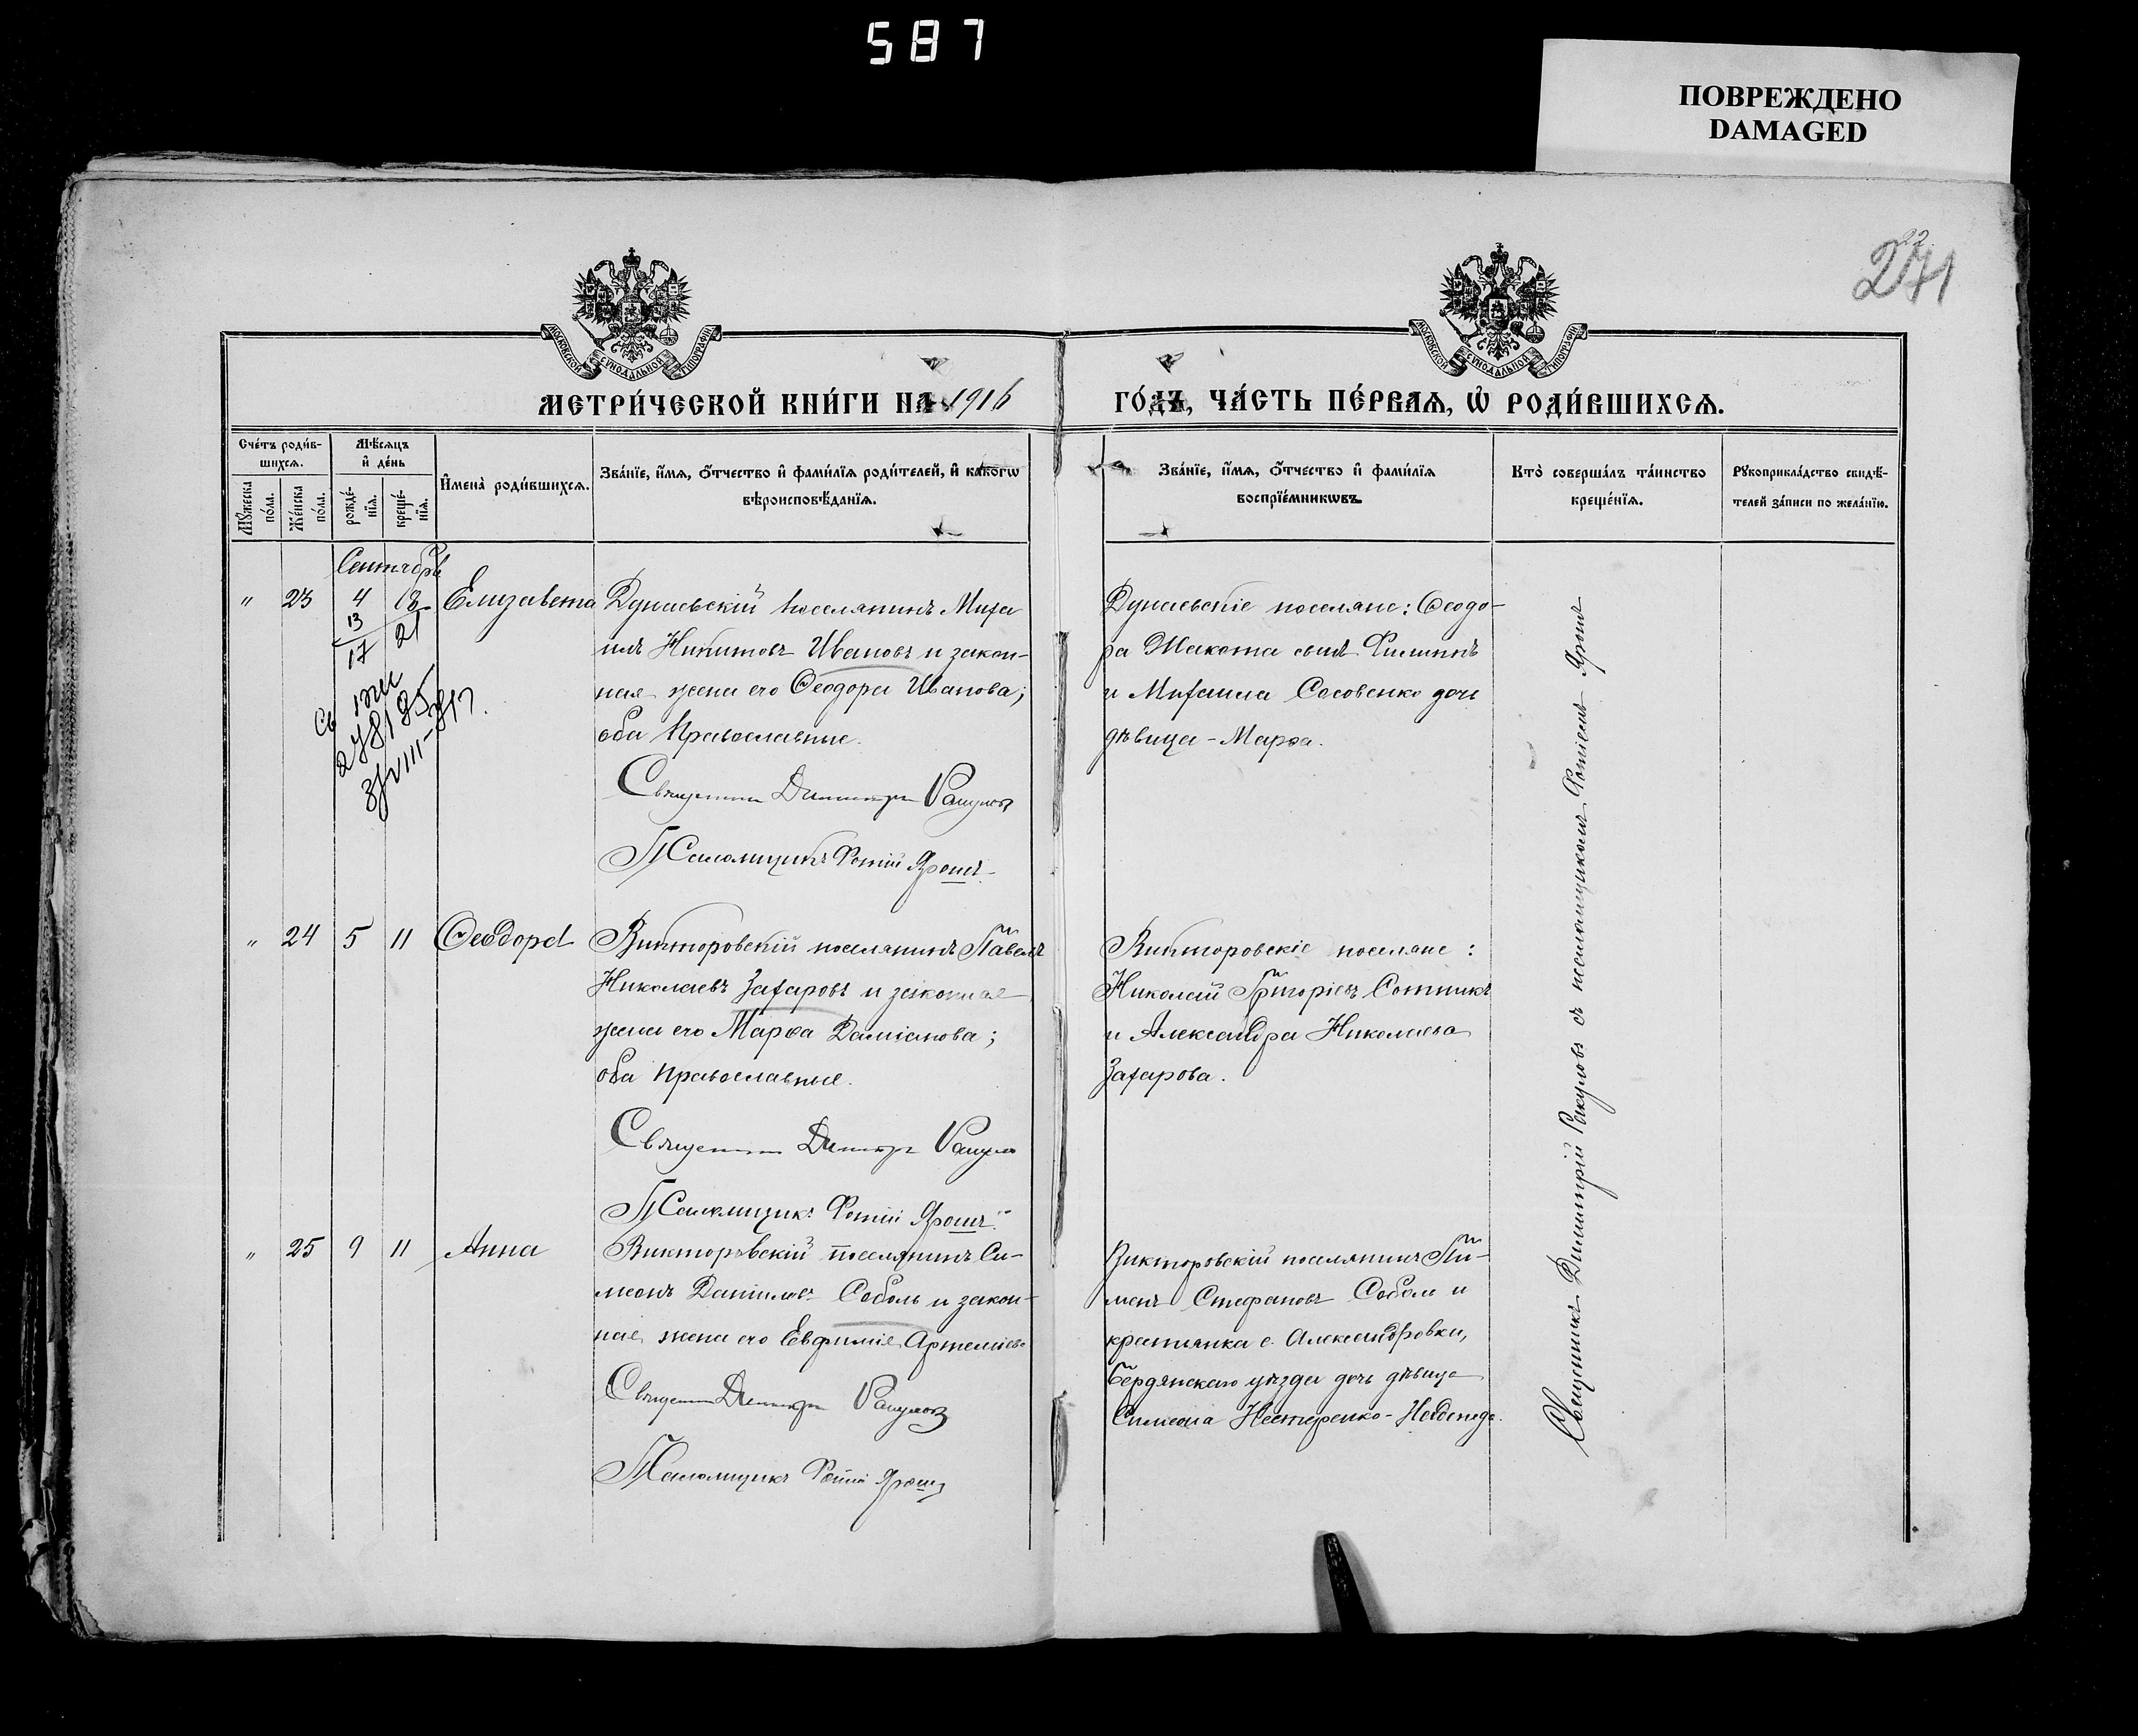 587
ПОВРЕЖДЕНО
DAMAGED
271
МОСКОВСКОЙ СѴНОДАЛЬНОЙ ТИПОГРАФИИ
МОСКОВСКОЙ СѴНОДАЛЬНОЙ ТИПОГРАФИИ
МЕТРИ́ЧЕСКОЙ КНИ́ГИ НА 1916
ГО́ДЪ, ЧА́СТЬ ПЕ́РВАѦ, Ѡ҆ РОДИ́ВШИХСѦ.
Сче́тъ роди́в-
шихсѧ.
Мѣ́сѧцъ
и҆ де́нь
Мꙋ́жеска
по́ла.
Же́нска
по́ла.
рожде́-
нїѧ.
креще́-
нїѧ.
И҆мена̀ роди́вшихсѧ.
Зва́нїе, и҆́мѧ, ѻ҆́тчество и҆ фами́лїѧ роди́телей, и҆ како́гѡ
вѣроисповѣ́данїѧ.
Зва́нїе, и҆́мѧ, ѻ҆́тчество и҆ фами́лїѧ
воспрїе́мникѡвъ
Кто̀ соверша́лъ та́инство
креще́нїѧ.
Рꙋкоприкла́дство свидѣ́-
телей за́писи по жела́нїю.
Сентябрь
" 23 4 8 Елизавета
13 21
17
Дунаевскій поселянинъ Миха
илъ Никитовъ Ивановъ и закон-
ная жена его Ѳеодора Иванова;
оба Православные.
Священникъ Димитрій Ракуловъ
Псаломщикъ Фотій Ярошъ.
Дунаевскіе поселяне: Ѳеодо-
ра Жакота сынъ Филиппъ
и Михаила Сосовенко дочь
дѣвица - Марѳа.
" 24 5 11 Ѳеодора
Викторовскій поселянинъ Павелъ
Николаевъ Захаровъ и законная
жена его Марѳа Даміанова;
оба Православные.
Священникъ Димитрій Ракуловъ
Псаломщикъ Фотій Ярошъ.
Викторовскіе поселяне:
Николай Григоріевъ Сотникъ
и Александра Николаева
Захарова.
" 25 9 11 Анна
Викторовскій поселянинъ Си-
меонъ Даніиловъ Соболь и закон-
ная жена его Евфимія Артеміева
Священникъ Димитрій Ракуловъ
Псаломщикъ Фотій Ярошъ
Викторовскій поселянинъ Пи-
менъ Стефановъ Соболь и
крестьянка с. Александровки,
Бердянскаго уѣзда дочь дѣвица
Симеона Нестеренко -
Священникъ Димитрій Ракуловъ съ псаломщикомъ Фотіемъ Ярошъ